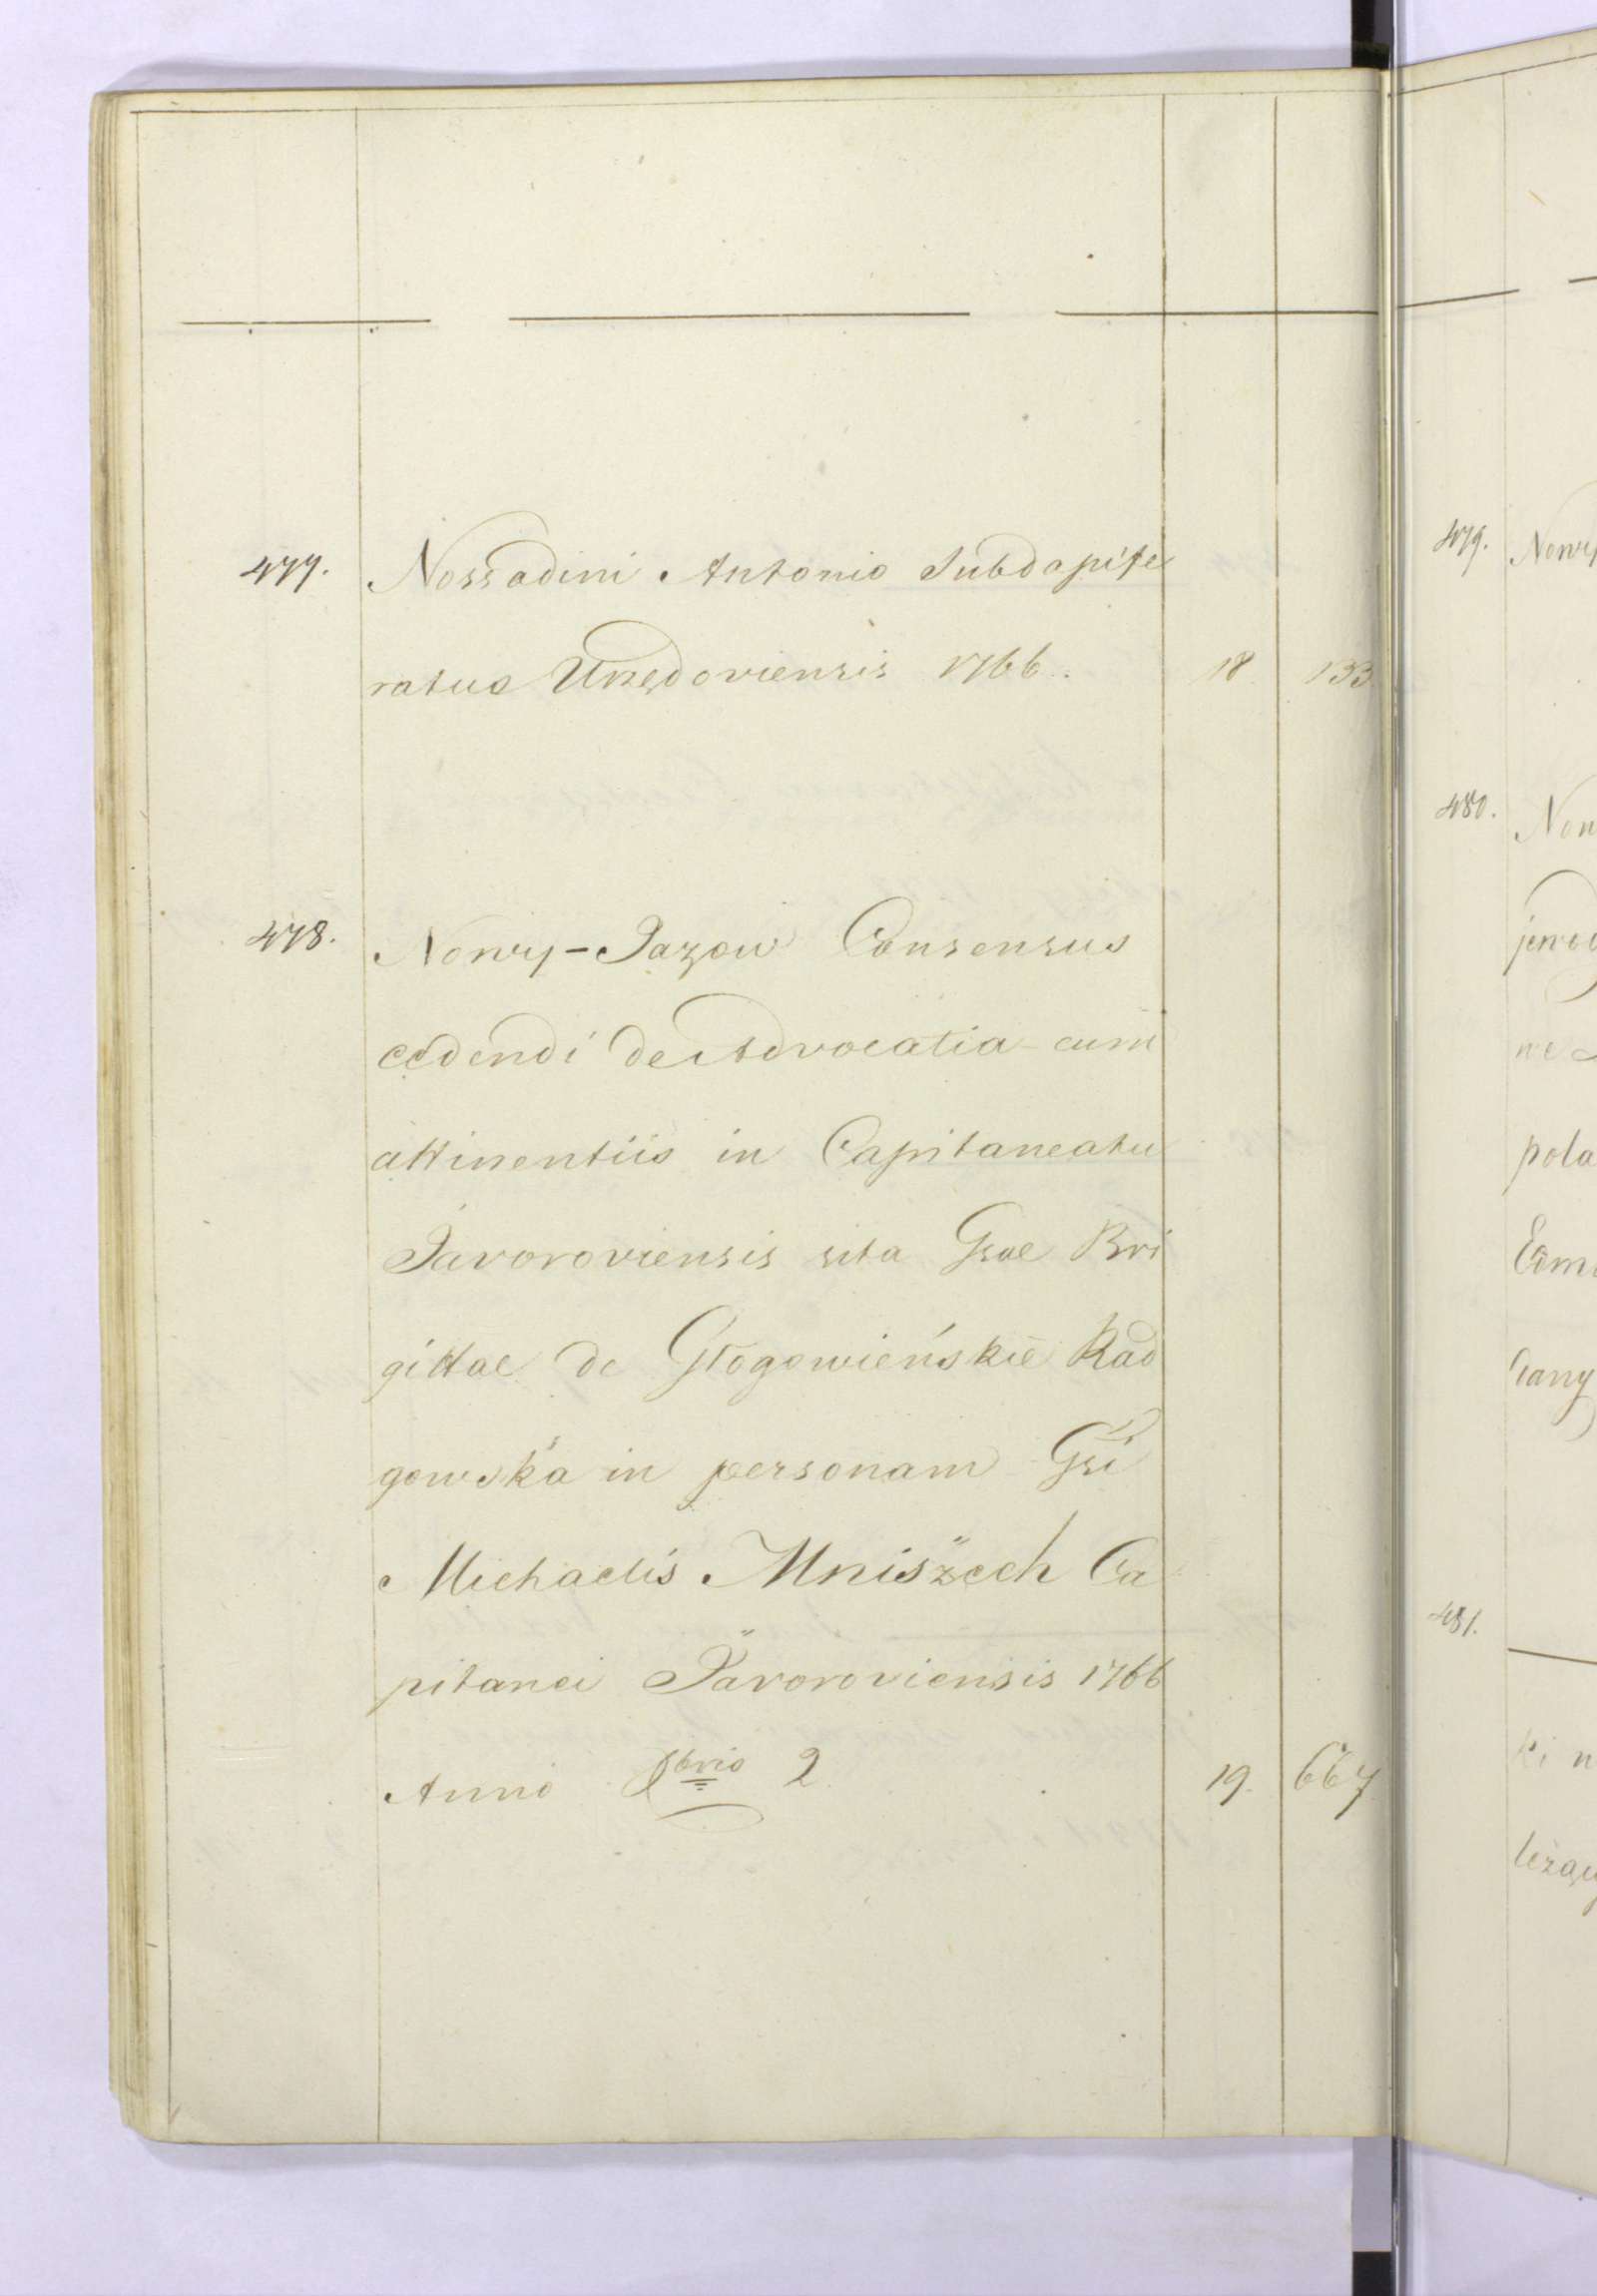 477. Nossadini Antonio Subdapife
ratus Unędoviensis 1766. 18. 133.
478. Nowy-Jazow Consensus
cedendi de Advocatia cum
attinentiis in Capitaneatu
Javoroviensis sita Gsae Bri
gittae de Głogowieńskie Rad
gowska in personam Gsi
Michaelis Mniszech Ca
pitanei Javoroviensis 1766
Anno 8bris 2 19. 667
479. Nowy
480. Now
jewod
we
pola
Cam
481.
ki n
leżąc